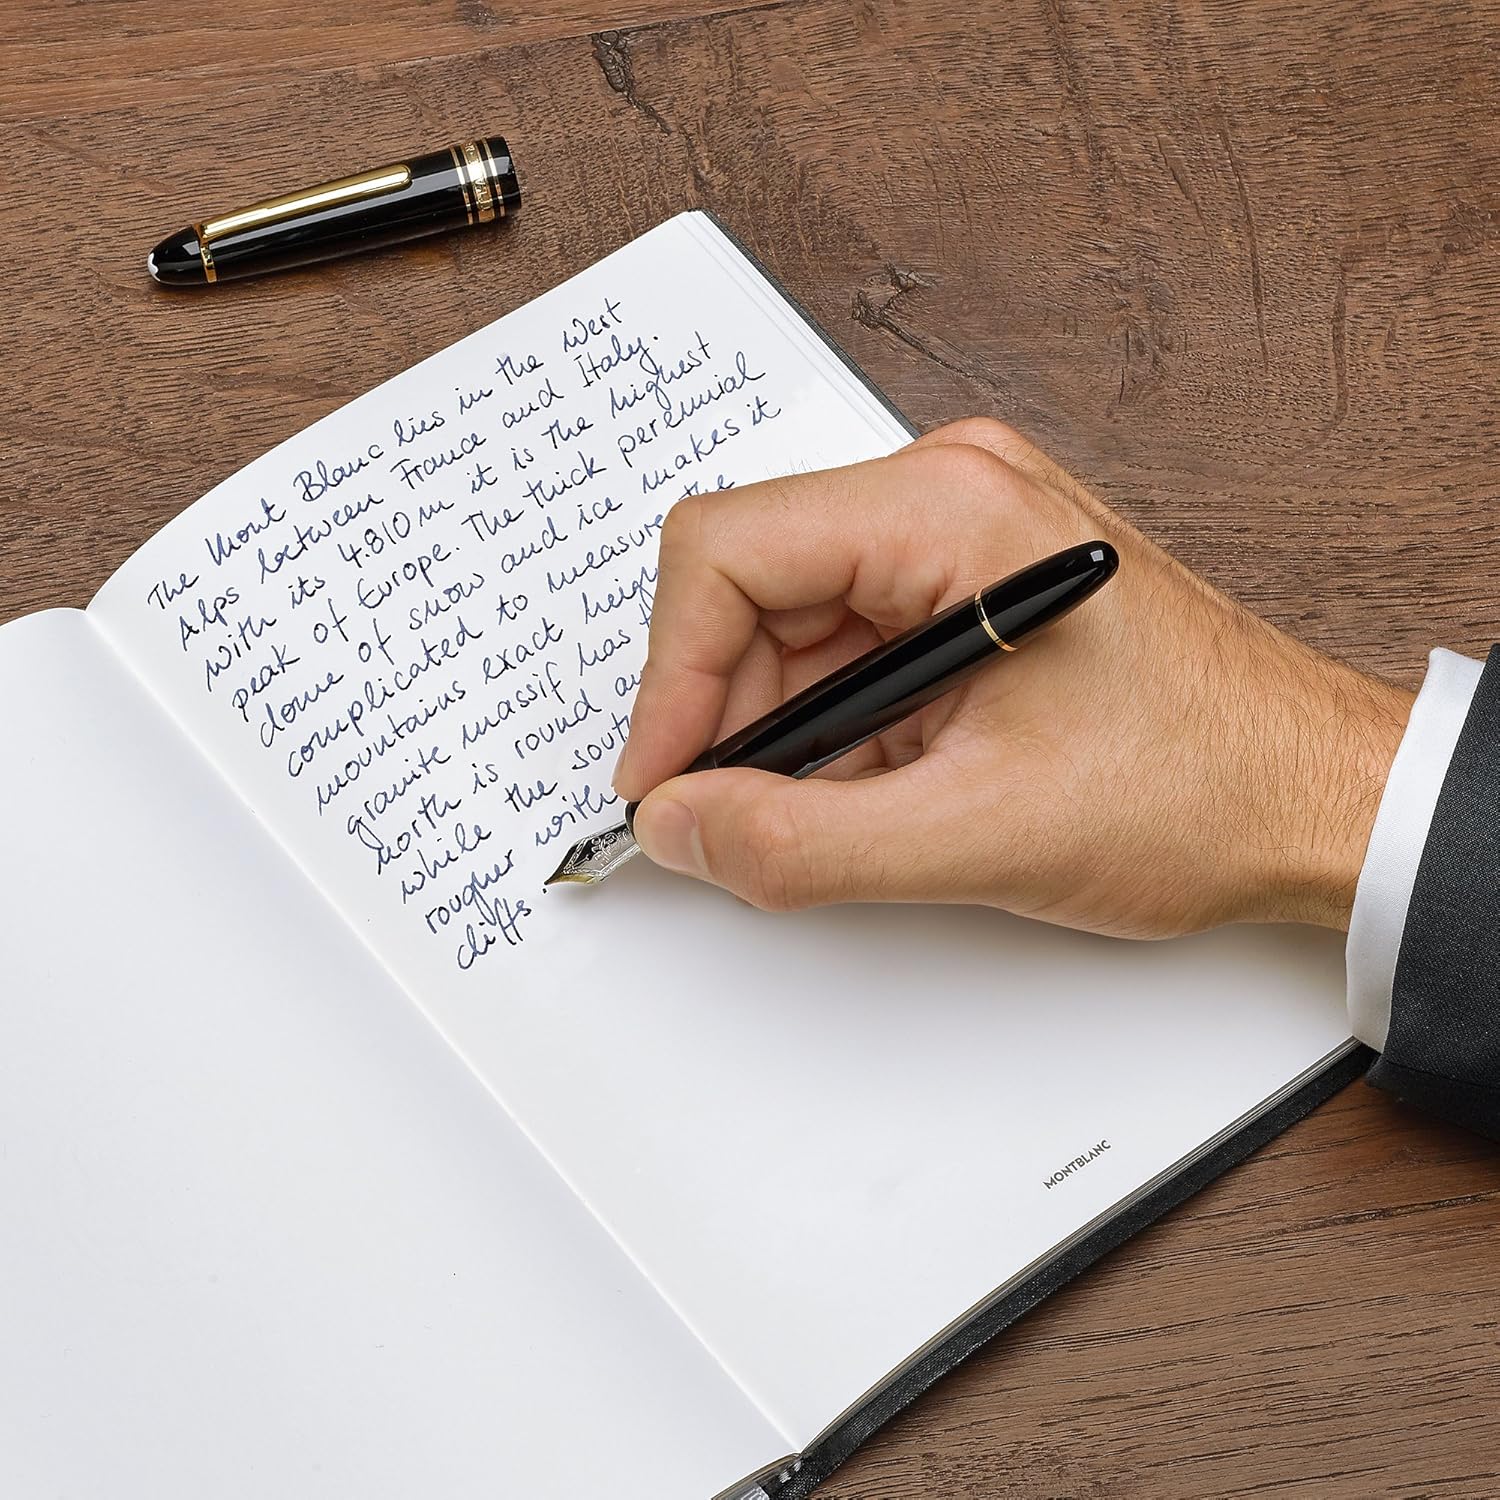 The Mont Blanc lies in the West
Alps between France and Italy.
With its 4.810 m it is the highest
peak of Europe. The thick perennial
dome of snow and ice makes it
complicated to measure the
mountains exact heigh
granite massif has t
north is round an
while the sout
rougher with
cliffs.
MONTBLANC